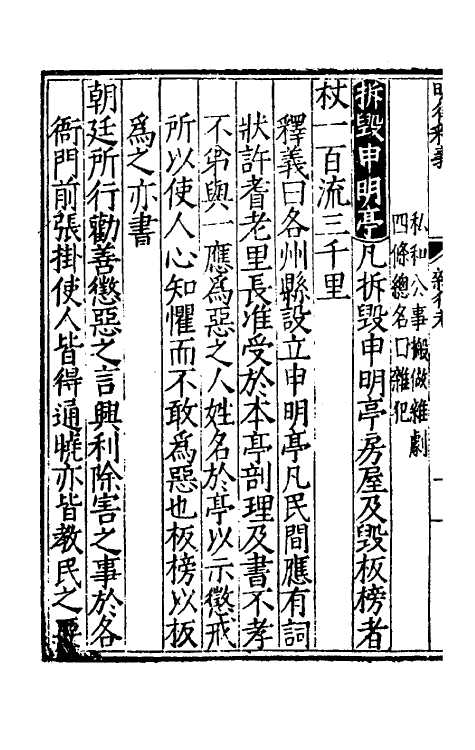 私和公事搬做雜劇
四條總名曰雜犯
拆毀申明亭凡拆毀申明亭房屋及毀板榜者
杖一百流三千里
釋義曰各州縣設立申明亭凡民間應有詞
狀許耆老里長准受於本亭剖理及書不孝
不第與一應爲惡之人姓名於亭以示懲戒
所以使人心知懼而不敢爲惡也板榜以板
爲之亦書
朝廷所行勸善懲惡之言興利除害之事於各
衙門前張掛使人皆得通曉亦皆教民之要